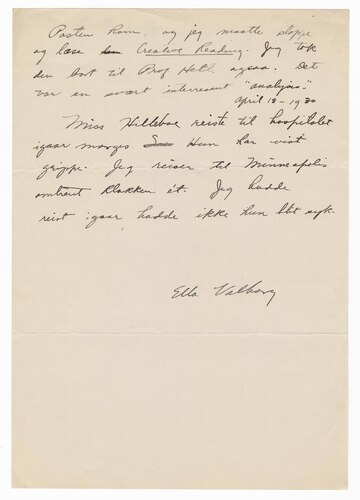 Posten kom, og jeg maatte stoppe
og læse Creative Reading. Jeg tok
den bort til Prof Hetl ogsaa. Det
var en svært interessent "analysis."
April 18 - 1930
Miss Hilleboe reiste til hospitalet
igaar morges. Hun har vist
grippe. Jeg reiser til Minneapolis
omtrent klokken ét. Jeg hadde
reist igaar hadde ikke hun blit syk.
Ella Valborg